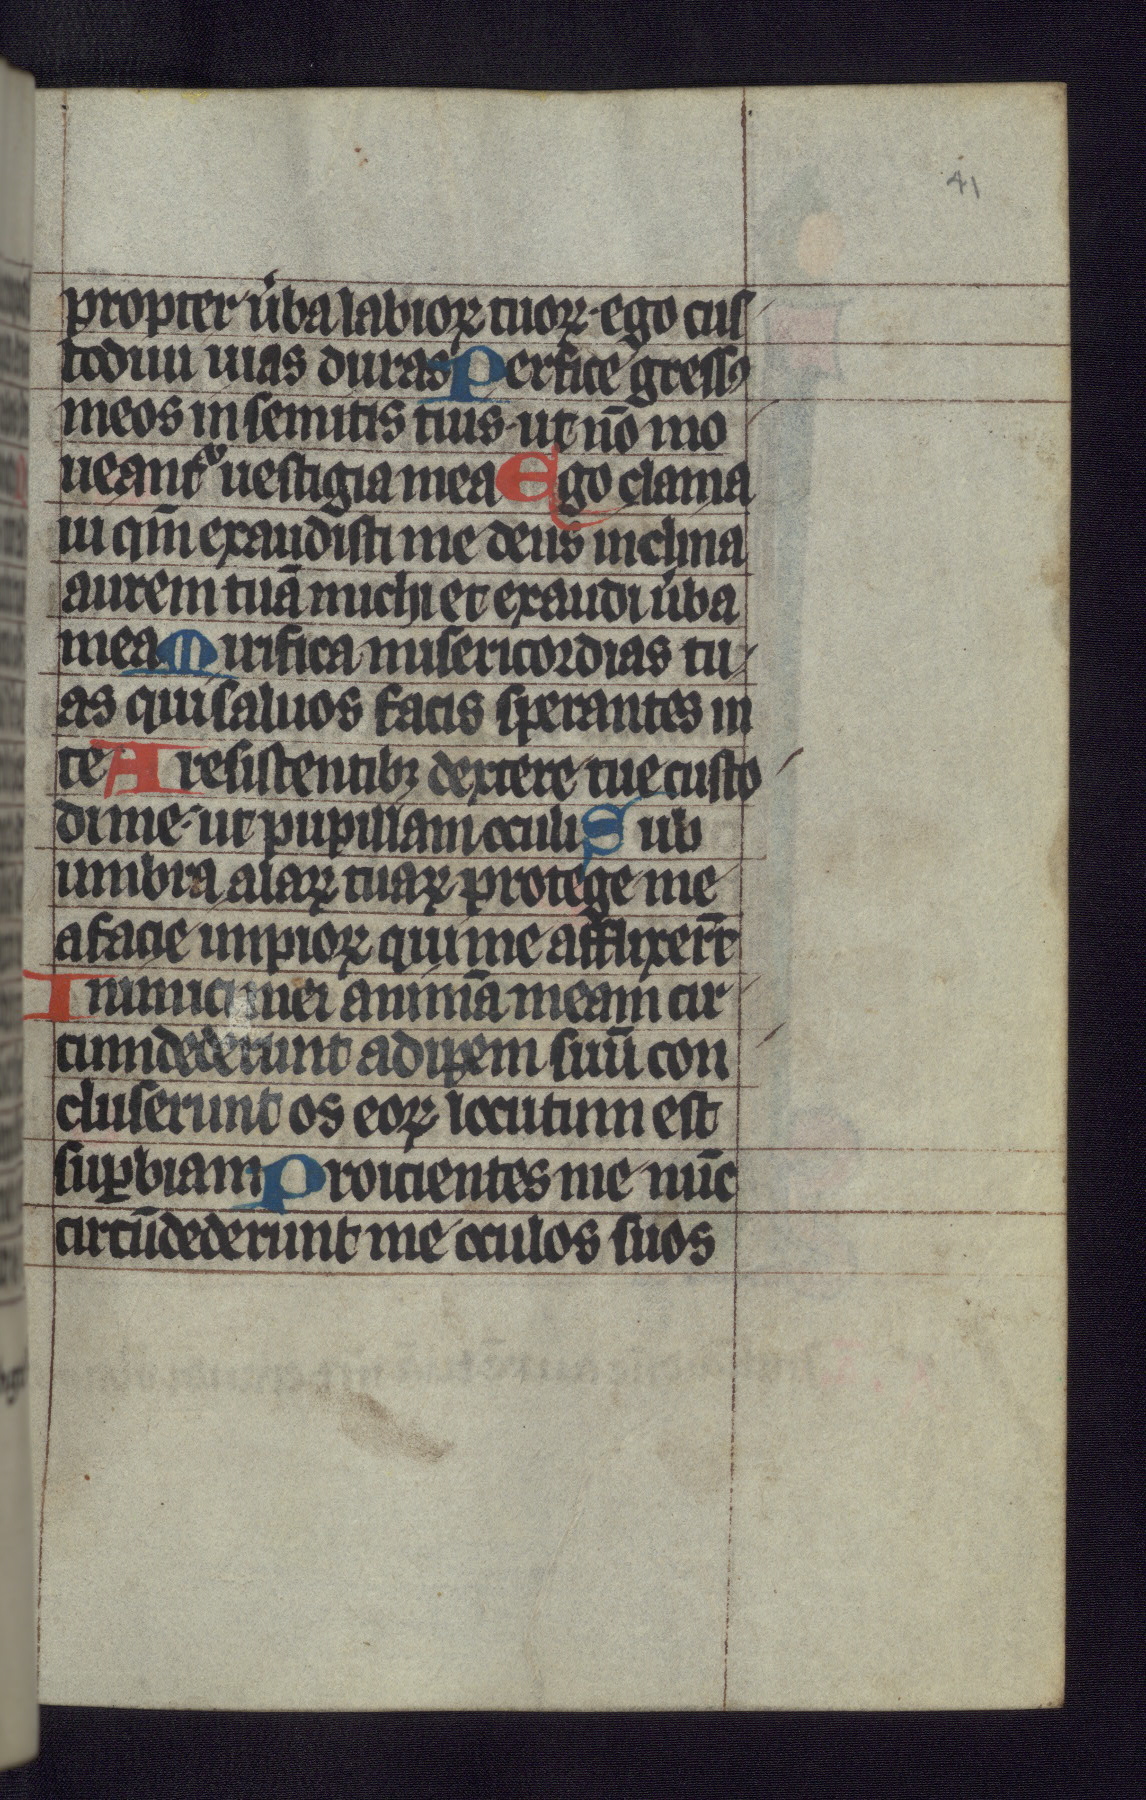 41
propter ũba labioꝝ tuoꝝ·ego cus
todiui uias duras Perfice gressꝰ
meos in semitis tuis·ut nō mo
ueantᷣ uestigia mea Ego clama
ui qm̄ exaudisti me deus inclina
aurem tuā michi et exaudi ũba
mea Mirifica misericordias tu
as qui saluos facis sperantes in
te A resistentibꝫ dextere tue custo
di me·ut pupillam oculi Sub
umbra alaꝝ tuaꝝ protege me
a facie impioꝝ qui me afflixerūt
Inimici mei animā meam cir
cumdederunt adipem suū con
cluserunt os eoꝝ locutum est
suꝑbiam Proicientes me nūc
circūdederunt me oculos suos